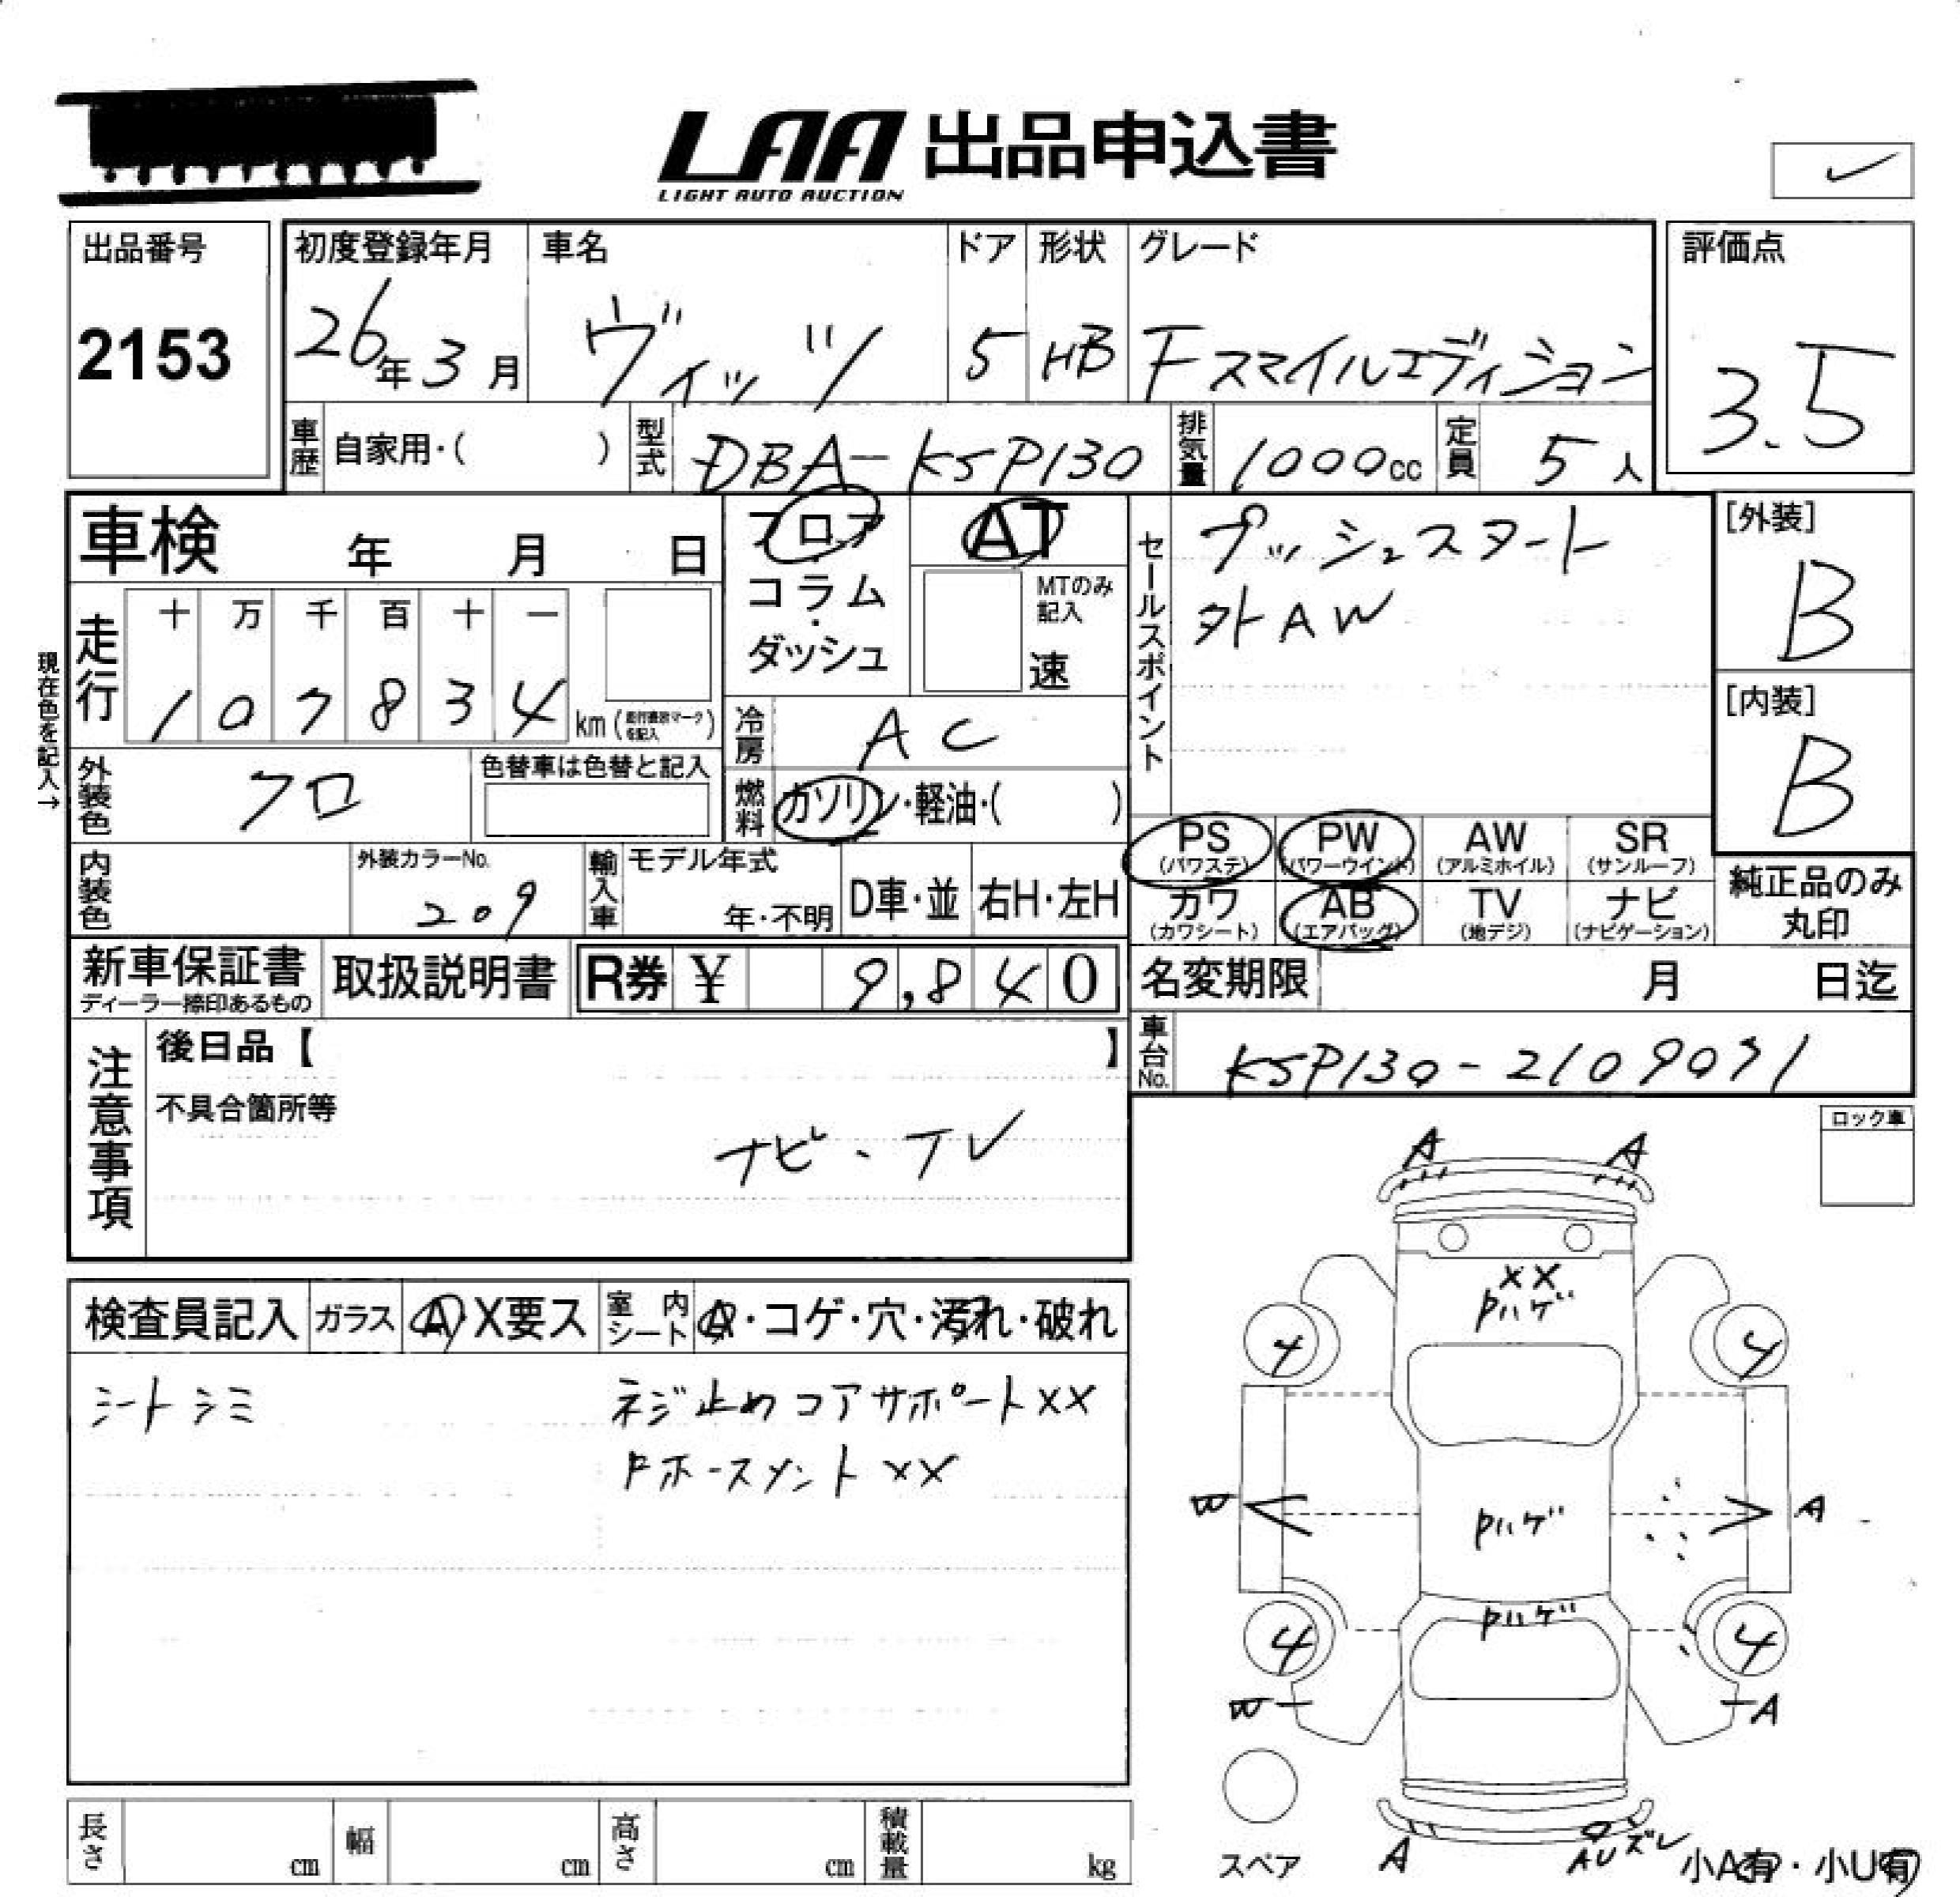 LAA 出品申込書
LIGHT AUTO AUCTION
出品番号
2153
初度登録年月
26年3月
車名
ヴィッツ
ドア
5
形状
HB
グレード
Fスマイルエディション
評価点
3.5
車歴 自家用・( )
型式 DBA-KSP130
排気量 1000cc
定員 5人
車検 年 月 日
フロア
・
コラム
・
ダッシュ
AT
MTのみ
記入
速
セールスポイント
プッシュスタート
外AW
[外装]
B
[内装]
B
現在色を記入→
走行
十 万 千 百 十 一
1 0 7 8 3 4 km (走行書替マークを記入)
冷房 AC
外装色 クロ
色替車は色替と記入
燃料 ガソリン・軽油・( )
内装色
外装カラーNo.
209
輸入車
モデル年式
年・不明
D車・並
右H・左H
PS
(パワステ)
PW
(パワーウインド)
AW
(アルミホイル)
SR
(サンルーフ)
カワ
(カワシート)
AB
(エアバッグ)
TV
(地デジ)
ナビ
(ナビゲーション)
純正品のみ
丸印
新車保証書
ディーラー捺印あるもの
取扱説明書
R券 ¥ 9,840
名変期限 月 日迄
車台No. KSP130-2109071
注意事項
後日品【 】
不具合箇所等
ナビ・TV
ロック車
検査員記入
ガラス A X要ス
室内シート A・コゲ・穴・汚れ・破れ
シートシミ
ネジ止めコアサポートXX
Fホースメント XX
A A
XX
Pハゲ
4 4
W A
Pハゲ
Pハゲ
4 4
W A
A
AUズレ
スペア
小A有・小U有
長さ cm
幅 cm
高さ cm
積載量 kg